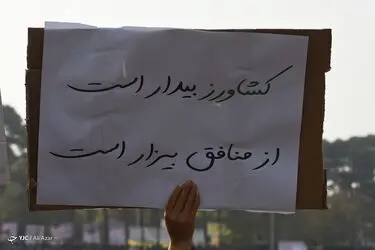 کشاورز بیدار است
از منافق بیزار است
YJC / Ali/Azar